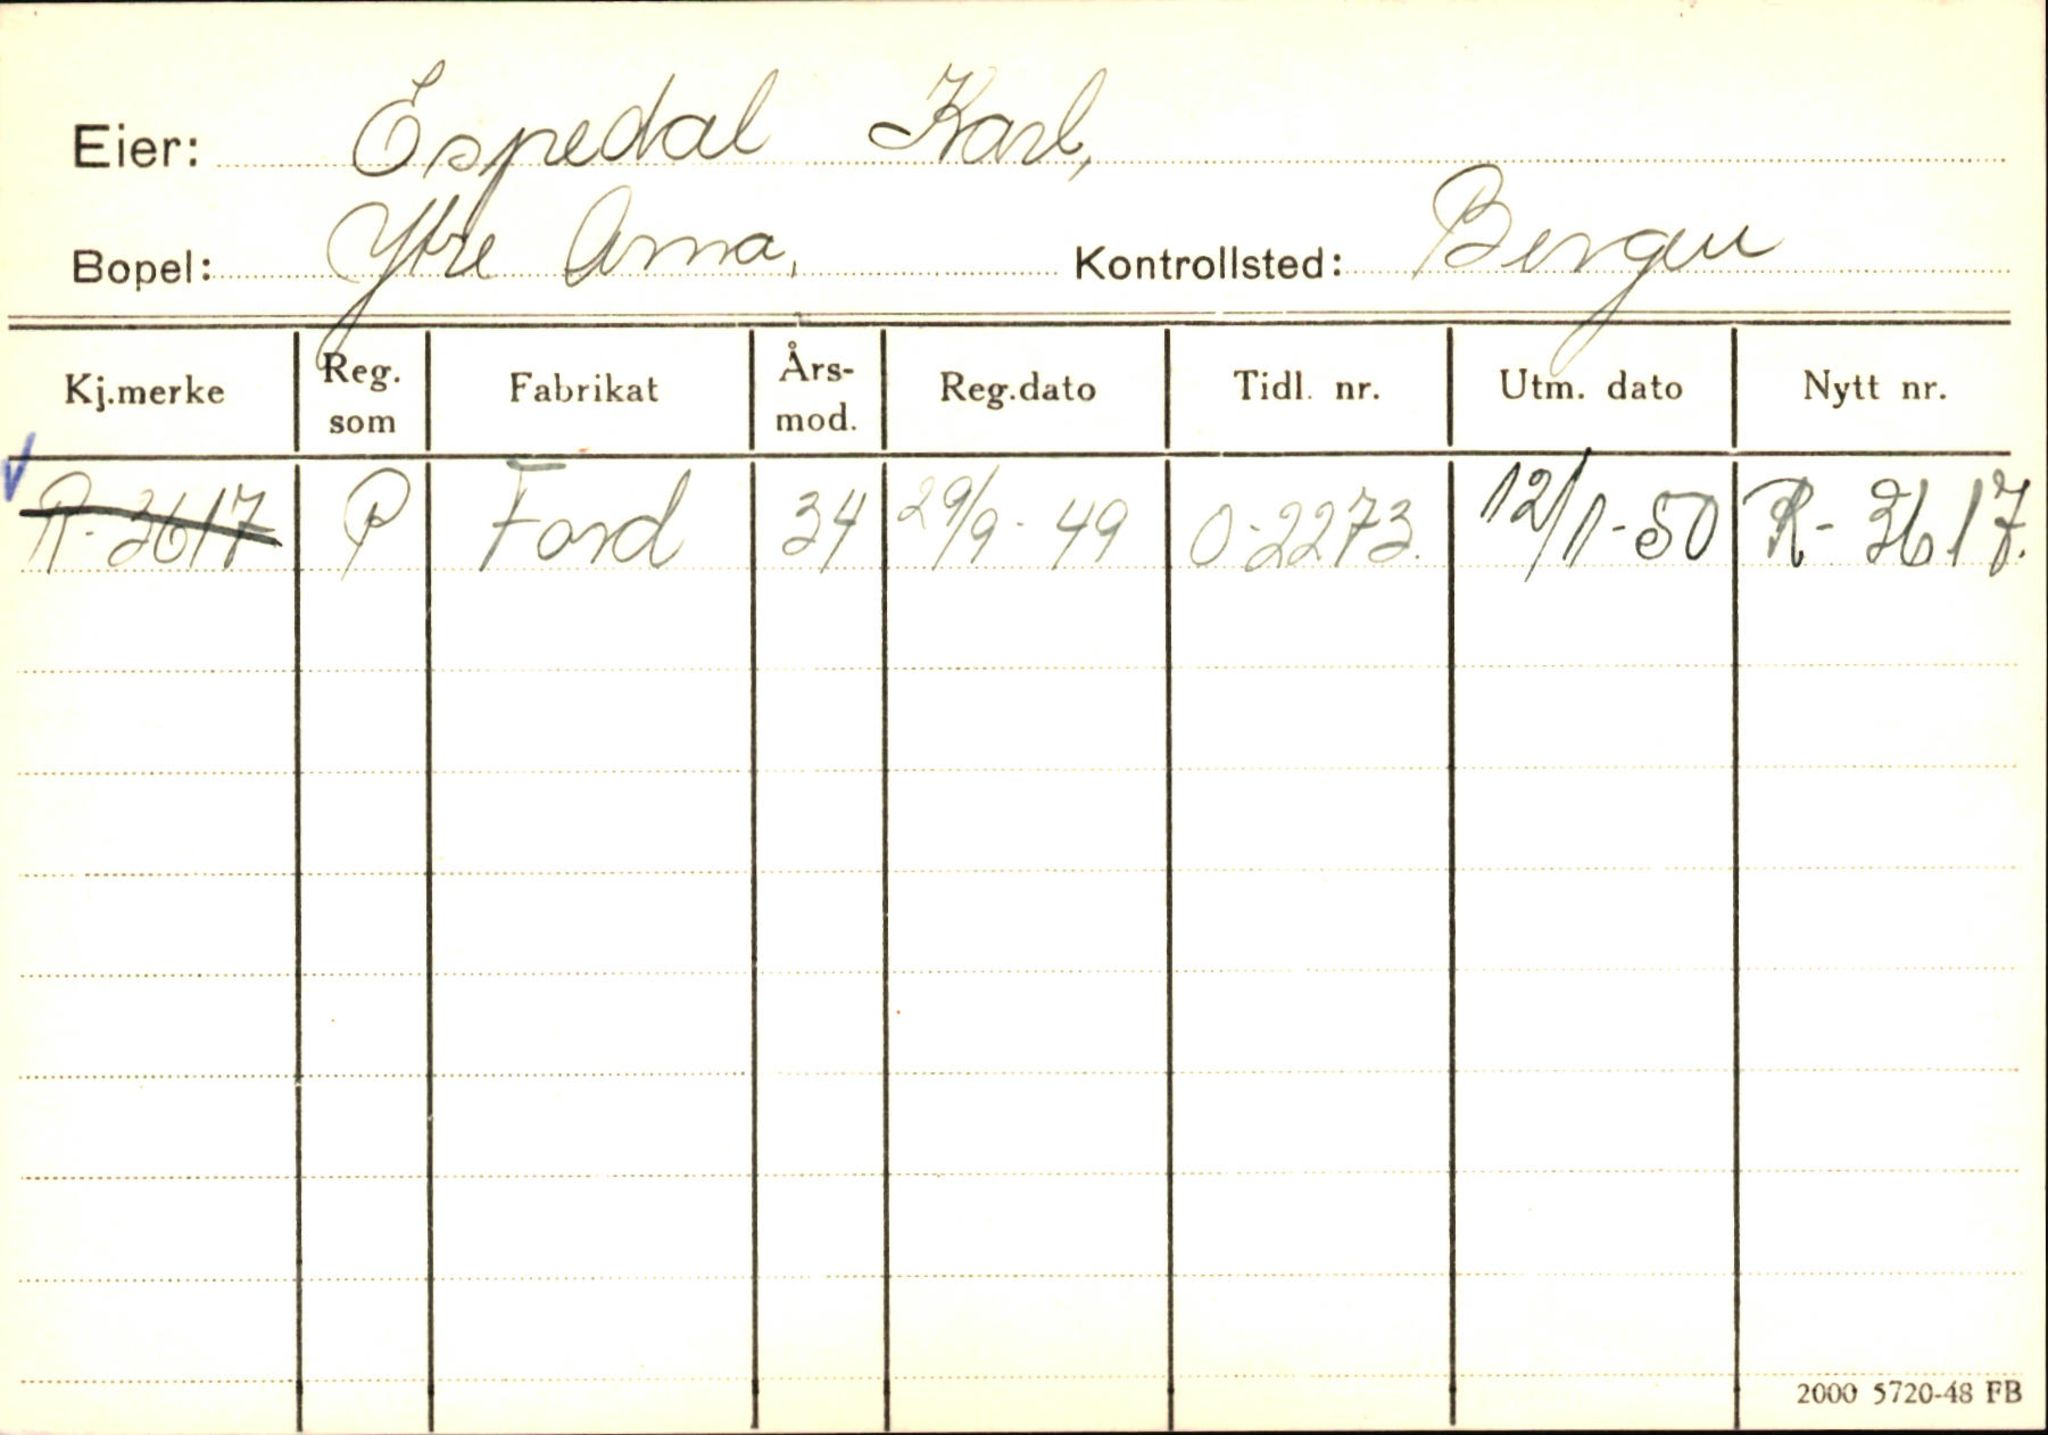 Eier: Espedal Karl,
Bopel: Ytre Arna, Kontrollsted: Bergen
Kj.merke Reg. som Fabrikat Års-mod. Reg.dato Tidl. nr. Utm. dato Nytt nr.
R-3617 P Ford 34 29/9-49 O-2273. 12/1-50 R-3617.
2000 5720-48 FB